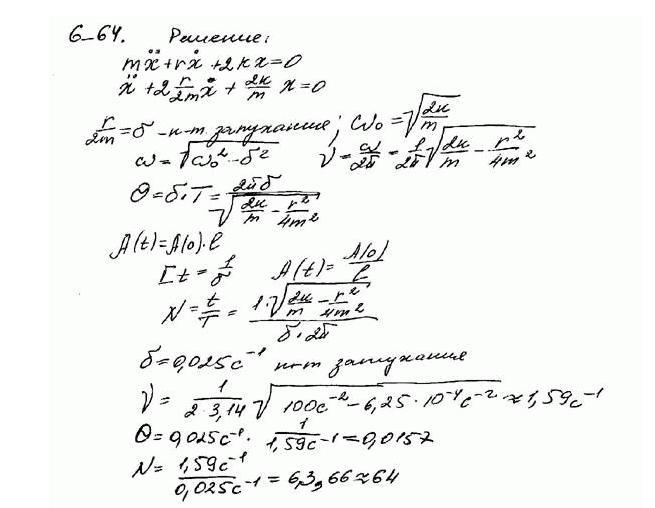 6-64. Решение:
mẍ+rẋ+2kx=0
ẍ+2 r/2m ẋ + 2k/m x=0
r/2m=б - к-т затухания; ω₀=√(2k/m)
ω=√(ω₀²-б²) ν=ω/2π=1/2π √(2k/m - r²/4m²)
Θ=б·T=2πб/√(2k/m - r²/4m²)
A(t)=A(0)·e
[t=1/б A(t)=A(0)/e
N=t/T=1·√(2k/m - r²/4m²)/б·2π
б=0,025с⁻¹ к-т затухания
ν=1/2·3,14 √(100с⁻² - 6,25·10⁻⁴с⁻²)≈1,59с⁻¹
Θ=0,025с⁻¹·1/1,59с⁻¹=0,0157
N=1,59с⁻¹/0,025с⁻¹=63,66≈64